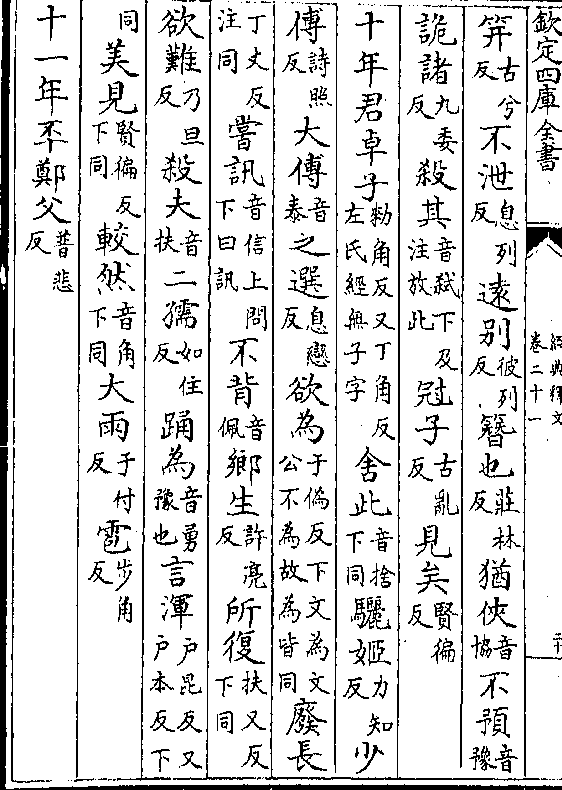 欽定四庫全書
經典釋文
卷二十一
笄古兮反不泄息列反遠别彼列反簪也莊林反猶俠音協不預音豫
詭諸九委反殺其音弑下及注放此冠子古亂反見矣賢徧反
十年君卓子勑角反又丁角反左氏經無子字舍此音捨下同驪姬力知反少
傅詩照反大傅音泰之選息戀反欲為于偽反下文為文公不為故為皆同廢長
丁丈反注同嘗訊音信上問下曰訊不背音佩鄉生許亮反所復扶又反下同
欲難乃旦反殺夫音扶二孺如住反踊為音勇豫也言渾户昆反又户本反下
同美見賢徧反下同較然音角下同大雨于付反雹步角反
十一年㔻鄭父普悲反